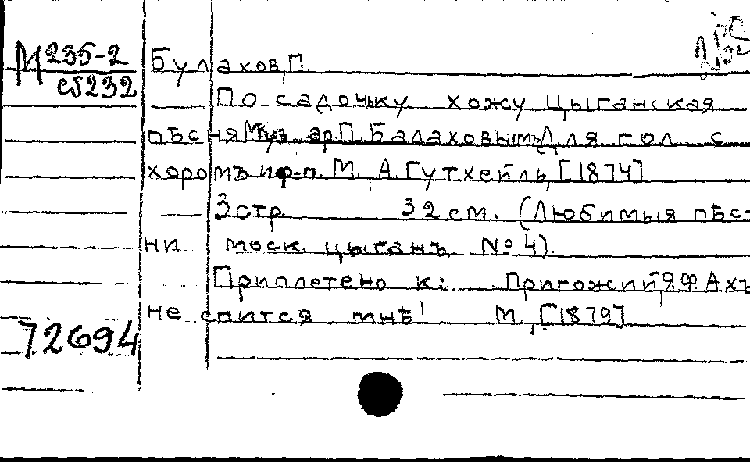 М 235-2
сб232
Булахов, П.
По садочку хожу Цыганская
пѣсня Муз. ар. П. Балаховымъ Для гол. с
хоромъ и ф-п. М. А. Гутхейль, [1874]
3 стр. 32 см. (Любимыя пѣс-
ни моск. цыганъ № 4).
Приплетено к: Пригожий, Я.Ф. Ахъ
не спится мнѣ! М., [1879]
72694